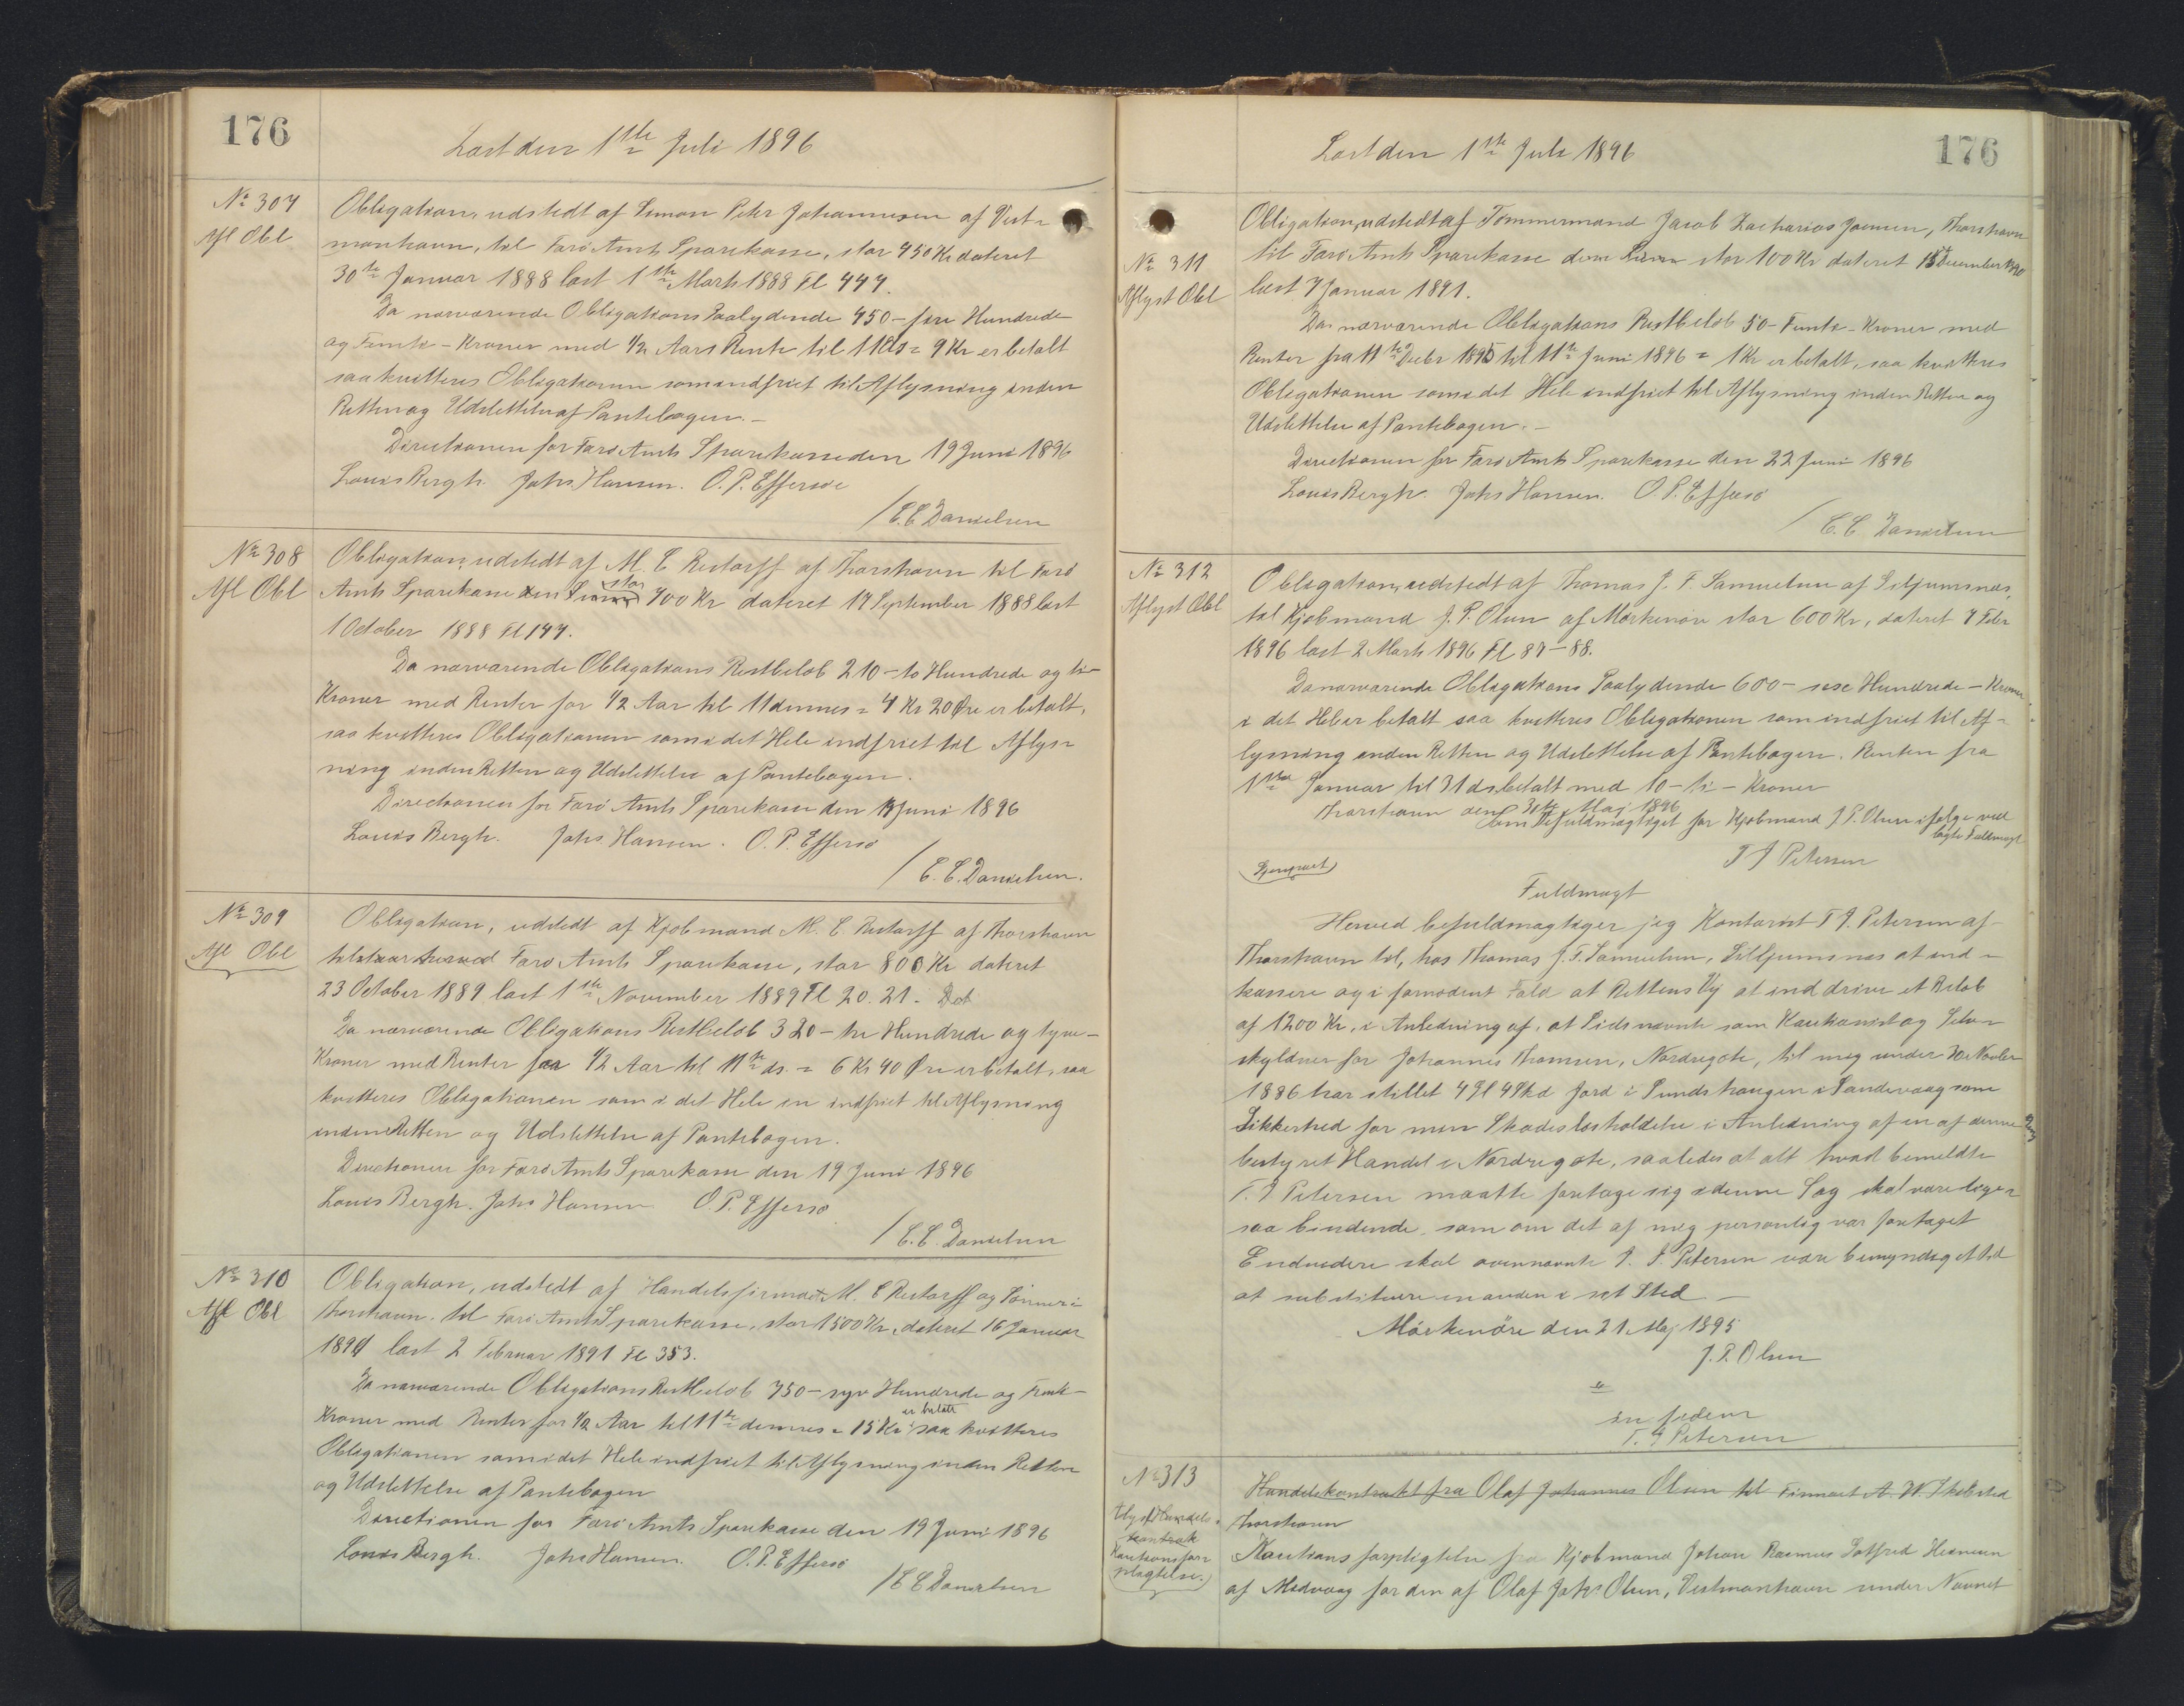 176
Læst den 1ste Juli 1896
No 307
Afl Obl
Obligation, udstedt af Simon Peter Johannesen af Vest-
manhavn, til Færø Amts Sparekasse, stor 450 Kr dateret
30te Januar 1888 læst 1ste Marts 1888 Fl 447.
Da nærværende Obligations Paalydende 450 - fire Hundrede
og Femti - Kroner med 1/2 Aars Rente til 11 ds = 9 Kr er betalt
saa kvitteres Obligationen som indfriet til Aflysning inden
Retten og Udslettelse af Pantebogen. -
Directionen for Færø Amts Sparekasse den 19 Juni 1896
Louis Bergh. Johs. Hansen. O. P. Effersøe
/ E. C. Danielsen
No 308
Afl Obl
Obligation, udstedt af M. C Restorff af Thorshavn til Færø
Amts Sparekasse den stor 700 Kr dateret 17 September 1888 læst
1 October 1888 Fl 144.
Da nærværende Obligations Restbeløb 210 - to Hundrede og ti -
Kroner med Renter for 1/2 Aar til 11 dennes = 4 Kr 20 Øre er betalt,
saa kvitteres Obligationen som i det Hele indfriet til Aflys=
ning inden Retten og Udslettelse af Pantebogen.
Directionen for Færø Amts Sparekasse den 19 Juni 1896
Louis Bergh. Johs Hansen. O. P. Effersø
/ E. C. Danielsen.
No 309
Afl Obl
Obligation, udstedt af Kjøbmand M. C Restorff af Thorshavn
til Færø Amts Sparekasse, stor 800 Kr dateret
23 October 1889 læst 1ste November 1889 Fl 20. 21.
Da nærværende Obligations Restbeløb 320 - tre Hundrede og tyve -
Kroner med Renter for 1/2 Aar til 11te ds. = 6 Kr 40 Øre er betalt, saa
kvitteres Obligationen som i det Hele en indfriet til Aflysning
inden Retten og Udslettelse af Pantebogen.
Directionen for Færø Amts Sparekasse den 19 Juni 1896
Louis Bergh. Johs Hansen O. P. Effersø
/ E. C. Danielsen
No 310
Afl Obl
Obligation, udstedt af Handelsfirmaet M. C Restorff og Sønner i
Thorshavn. til Færø Amts Sparekasse, stor 1500 Kr, dateret 16 Januar
1891 læst 2 Februar 1891 Fl 353.
Da nærværende Obligations Restbeløb 750 - syv Hundrede og Femti -
Kroner med Renter for 1/2 Aar til 11te dennes = 15 Kr er betalt saa kvitteres
Obligationen som i det Hele indfriet til Aflysning inden Retten
og Udslettelse af Pantebogen
Directionen for Færø Amts Sparekasse den 19 Juni 1896
Louis Bergh. Johs Hansen. O. P. Effersø
/ E C Danielsen
Læst den 1ste Juli 1896
176
No 311
Aflyst Obl
Obligation, udstedt af Tømmermand Jacob Zacharias Joensen, Thorshavn
til Færø Amts Sparekasse stor 100 Kr dateret 15 December 1890
læst 7 Januar 1891.
Da nærværende Obligations Restbeløb 50 - Femti - Kroner med
Renter fra 11te Decbr 1895 til 11te Juni 1896 = 1 Kr er betalt, saa kvitteres
Obligationen som i det Hele indfriet til Aflysning inden Retten og
Udslettelse af Pantebogen. -
Directionen for Færø Amts Sparekasse den 22 Juni 1896
Louis Bergh. Johs Hansen. O. P. Effersø
/ E. C. Danielsen
No 312
Aflyst Obl
Obligation, udstedt af Thomas J. F. Samuelsen af Seljumsnæs,
til Kjøbmand J. P. Olsen af Mørkenøre stor 600 Kr, dateret 7 Febr
1896 læst 2 Marts 1896 Fl 87-88.
Da nærværende Obligations Paalydende 600 - sex Hundrede - Kroner
i det Hele er betalt saa kvitteres Obligationen som indfriet til Af-
lysning inden Retten og Udslettelse af Pantebogen. Renten fra
1ste Januar til 31 ds betalt med 10 - ti - Kroner
Thorshavn den 30te Maj 1896
Som Befuldmægtiget for Kjøbmand J. P. Olsen ifølge ved
lagte Fuldmagt
T J Petersen
Gjenpart
Fuldmagt
Herved befuldmægtiger jeg Kontorist T. J. Petersen af
Thorshavn til, hos Thomas J. F. Samuelsen, Selljumsnæs at ind=
kassere og i fornødent Fald at Rettens Vej at inddrive et Beløb
af 1200 Kr, i Anledning af, at Sidsnævnte som Kautionist og Selv=
skyldner for Johannes Thomsen, Nordregøte, til mig under 30 Novbr
1886 har stillet 4 Gl 4 Skd Jord i Sundshaugen i Sandevaag som
Sikkerhed for min Skadesløsholdelse i Anledning af en af denne
bestyret Handel i Nordregøte, saaledes at alt hvad bemeldte
T. J Petersen maatte foretage sig i denne Sag skal være lige=
saa bindende som om det af mig personlig var foretaget
Endvidere skal ovennævnte T. J. Petersen være bemyndiget til
at substituere en anden i sit Sted -
Mørkenøre den 21 Maj 1895
J. P. Olsen
in fidem
T. J Petersen
No 313
tlyst Handels
kontrakt
Kautionsfor
pligtelse.
Handelskontrakt fra Olaf Johannes Olsen til Firmaet A. W. Skibsted
Thorshavn
Kautionsforpligtelse fra Kjøbmand Johan Rasmus Sofred Heinesen
af Midvaag for den af Olaf Johs Olsen, Vestmanhavn under Navnet